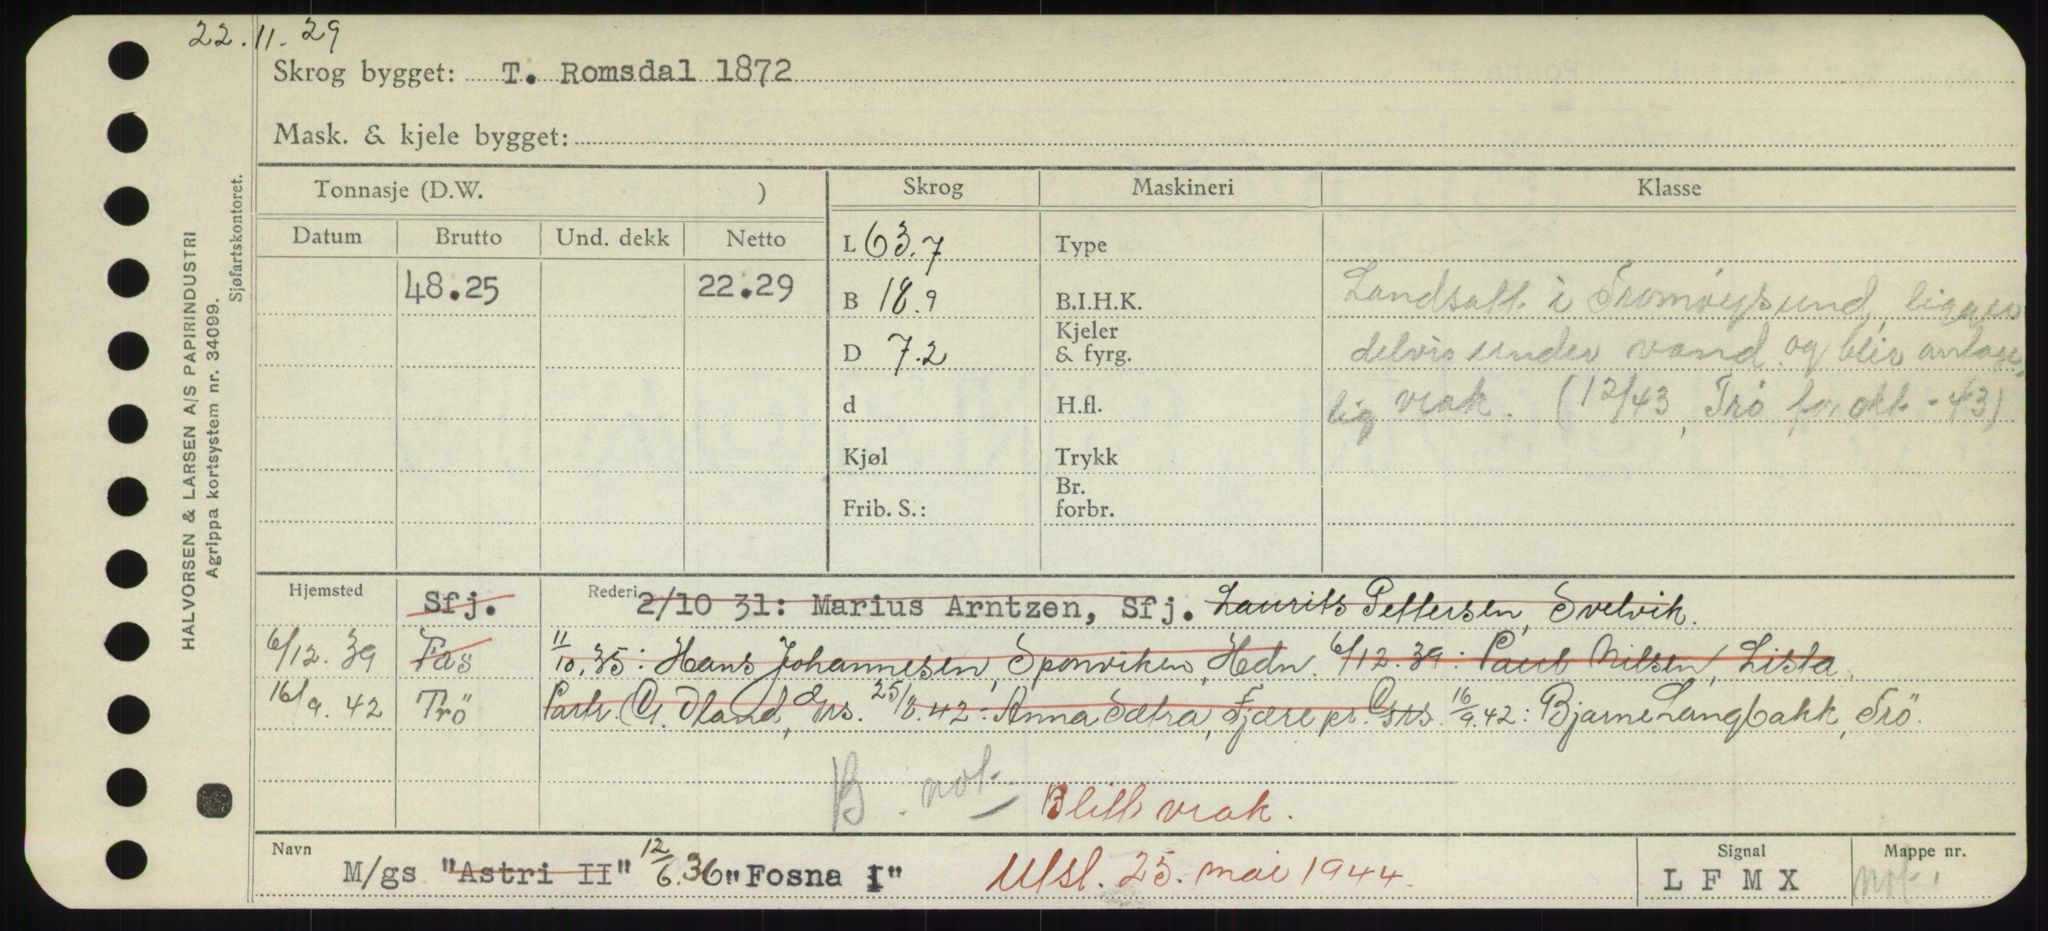 22.11.29
Skrog bygget: T. Romsdal 1872
Mask. & kjele bygget:
HALVORSEN & LARSEN A/S PAPIRINDUSTRI
Agrippa kortsystem nr. 34099.
Sjøfartskontoret.
Tonnasje (D.W. )
Skrog
Maskineri
Klasse
Datum Brutto Und. dekk Netto
48.25 22.29
L 63.7
B 18.9
D 7.2
d
Kjøl
Frib. S.:
Type
B.I.H.K.
Kjeler
& fyrg.
H.fl.
Trykk
Br.
forbr.
Landsatt i Tromøysund, ligger
delvis under vand og blir antage-
lig vrak. (12/43, Trö for okt - 43)
Hjemsted Sfj. Rederi 2/10 31: Marius Arntzen, Sfj. Laurits Pettersen, Svelvik.
6/12. 39 Fas 11/10.35: Hans Johannesen, Sponviken, Hdn. 6/12.39: Paul Nilsen, Lista.
16/9. 42 Trö Partr. Dland, 42: Anna Sætra, Fjære pr. Grs. 16/9.42: Bjarne Langbakk, Trö.
B. not
Blitt vrak.
Navn M/gs "Astri II" 12/6.36 "Fosna I" Utsl. 25. mai 1944.
Signal
L F M X
Mappe nr.
not.